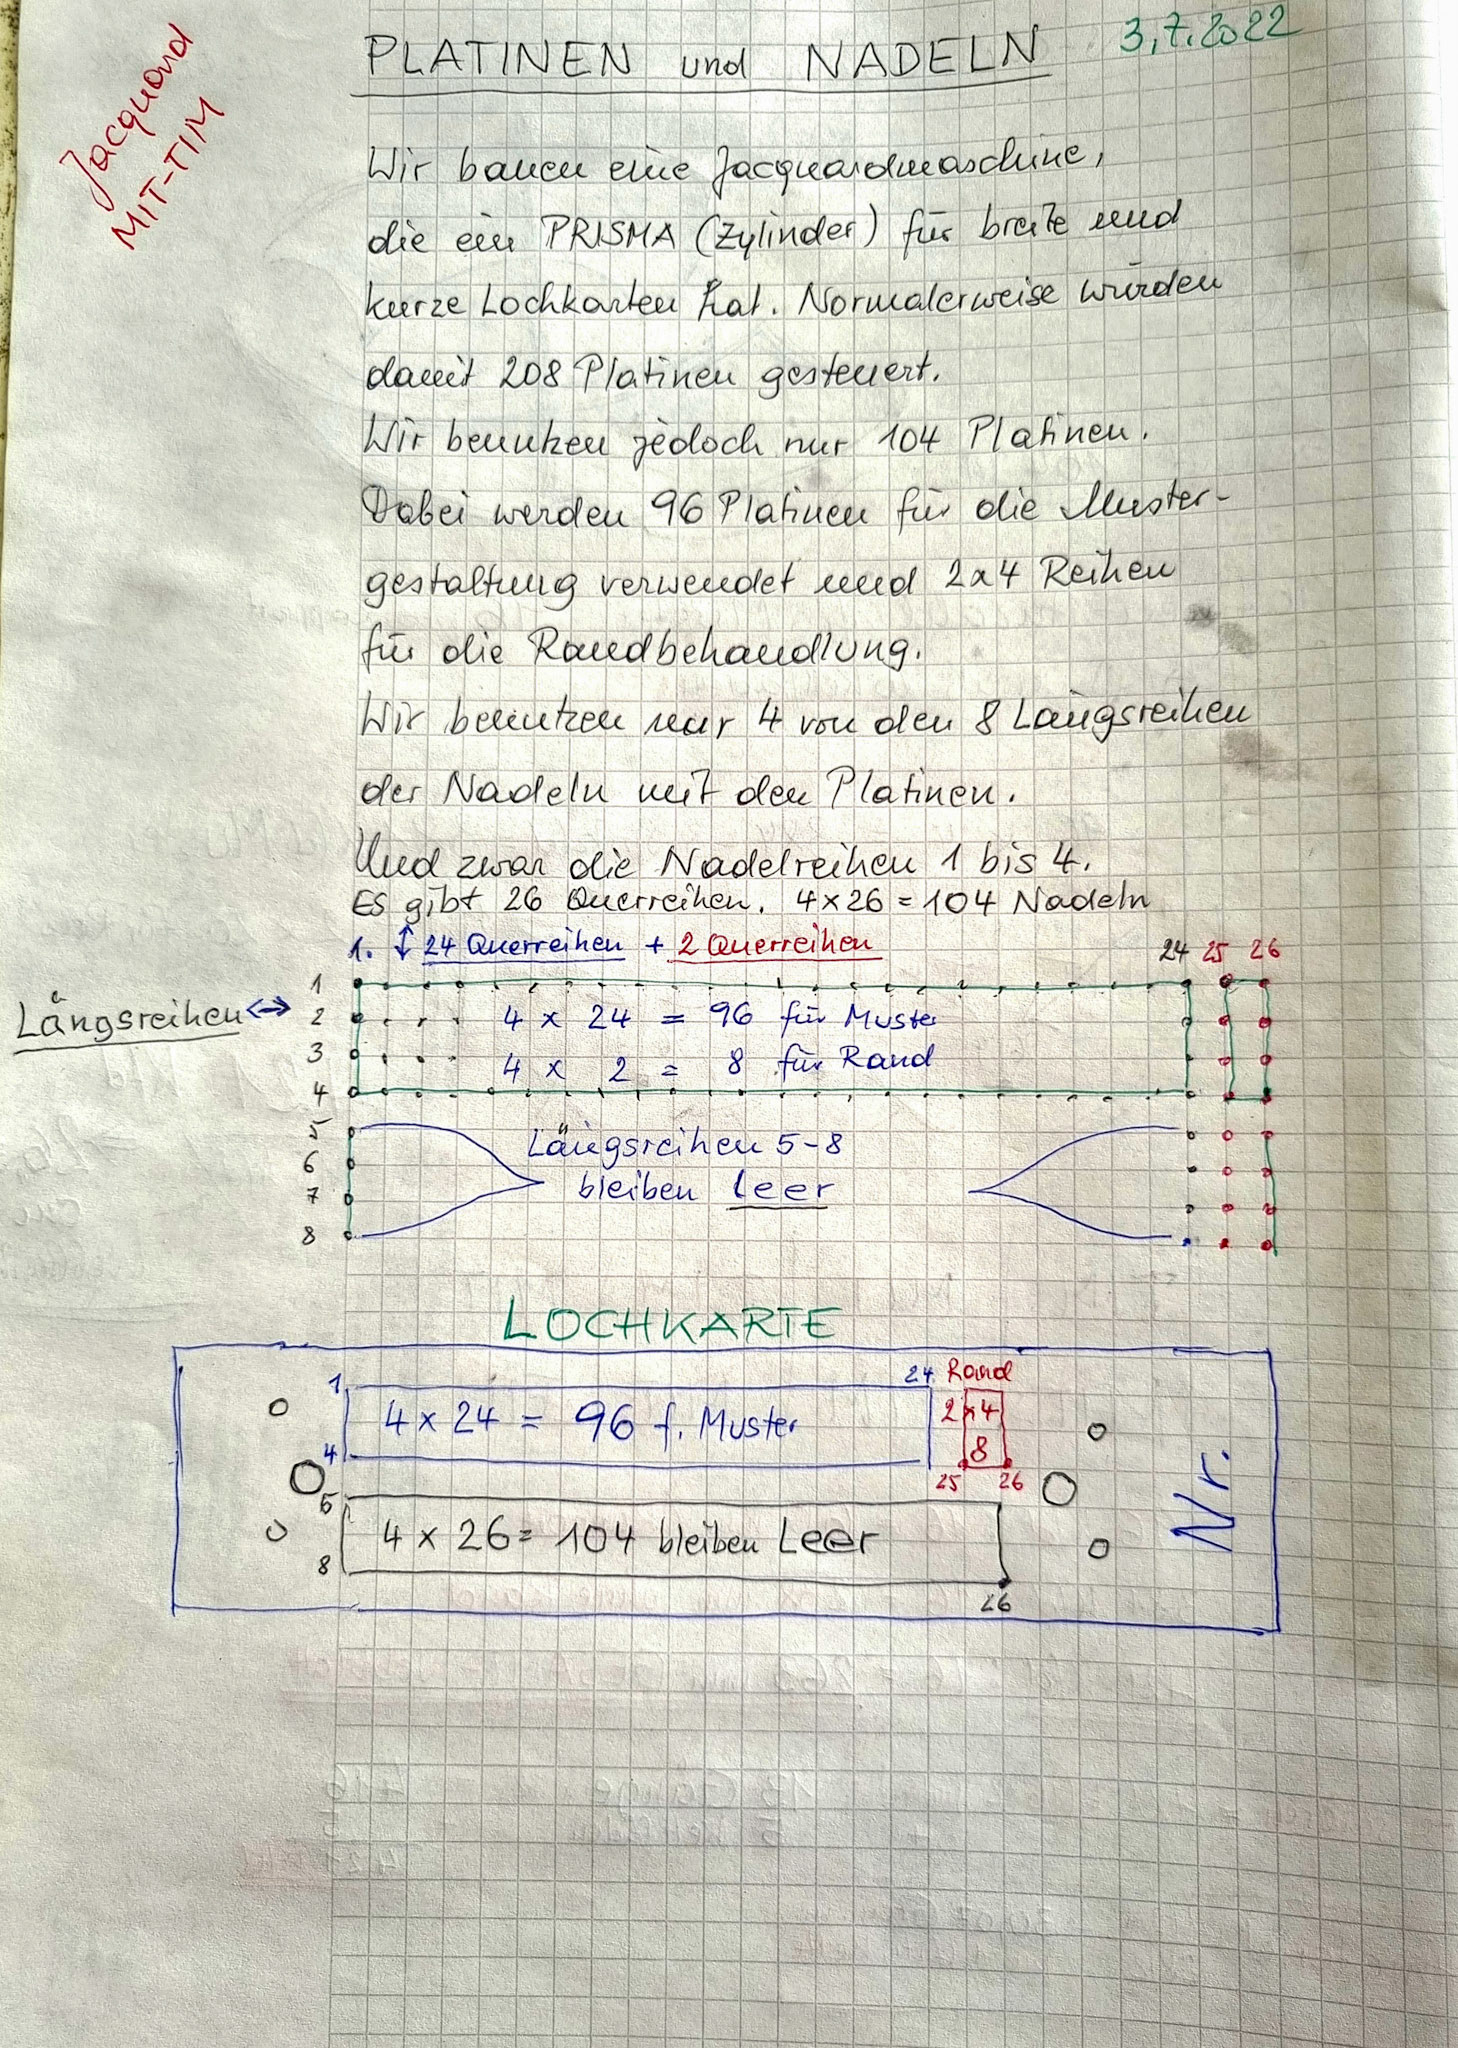 Jacquard
MIT-TIM
3.7.2022
PLATINEN und NADELN
Wir bauen eine Jacquardmaschine,
die ein PRISMA (Zylinder) für breite und
kurze Lochkarten hat. Normalerweise würden
damit 208 Platinen gesteuert.
Wir benutzen jedoch nur 104 Platinen.
Dabei werden 96 Platinen für die Muster-
gestaltung verwendet und 2x4 Reihen
für die Randbehandlung.
Wir benutzen nur 4 von den 8 Längsreihen
der Nadeln mit den Platinen.
Und zwar die Nadelreihen 1 bis 4.
Es gibt 26 Querreihen. 4 x 26 = 104 Nadeln
1. ↕ 24 Querreihen + 2 Querreihen 24 25 26
1
Längsreihen ↔ 2 4 x 24 = 96 für Muster
3 4 x 2 = 8 für Rand
4
5 Längsreihen 5-8
6
7 bleiben Leer
8
LOCHKARTE
1 24 Rand
4 x 24 = 96 f. Muster 2x4
4 8
25 26
5
4 x 26 = 104 bleiben Leer
8
26
Nr.